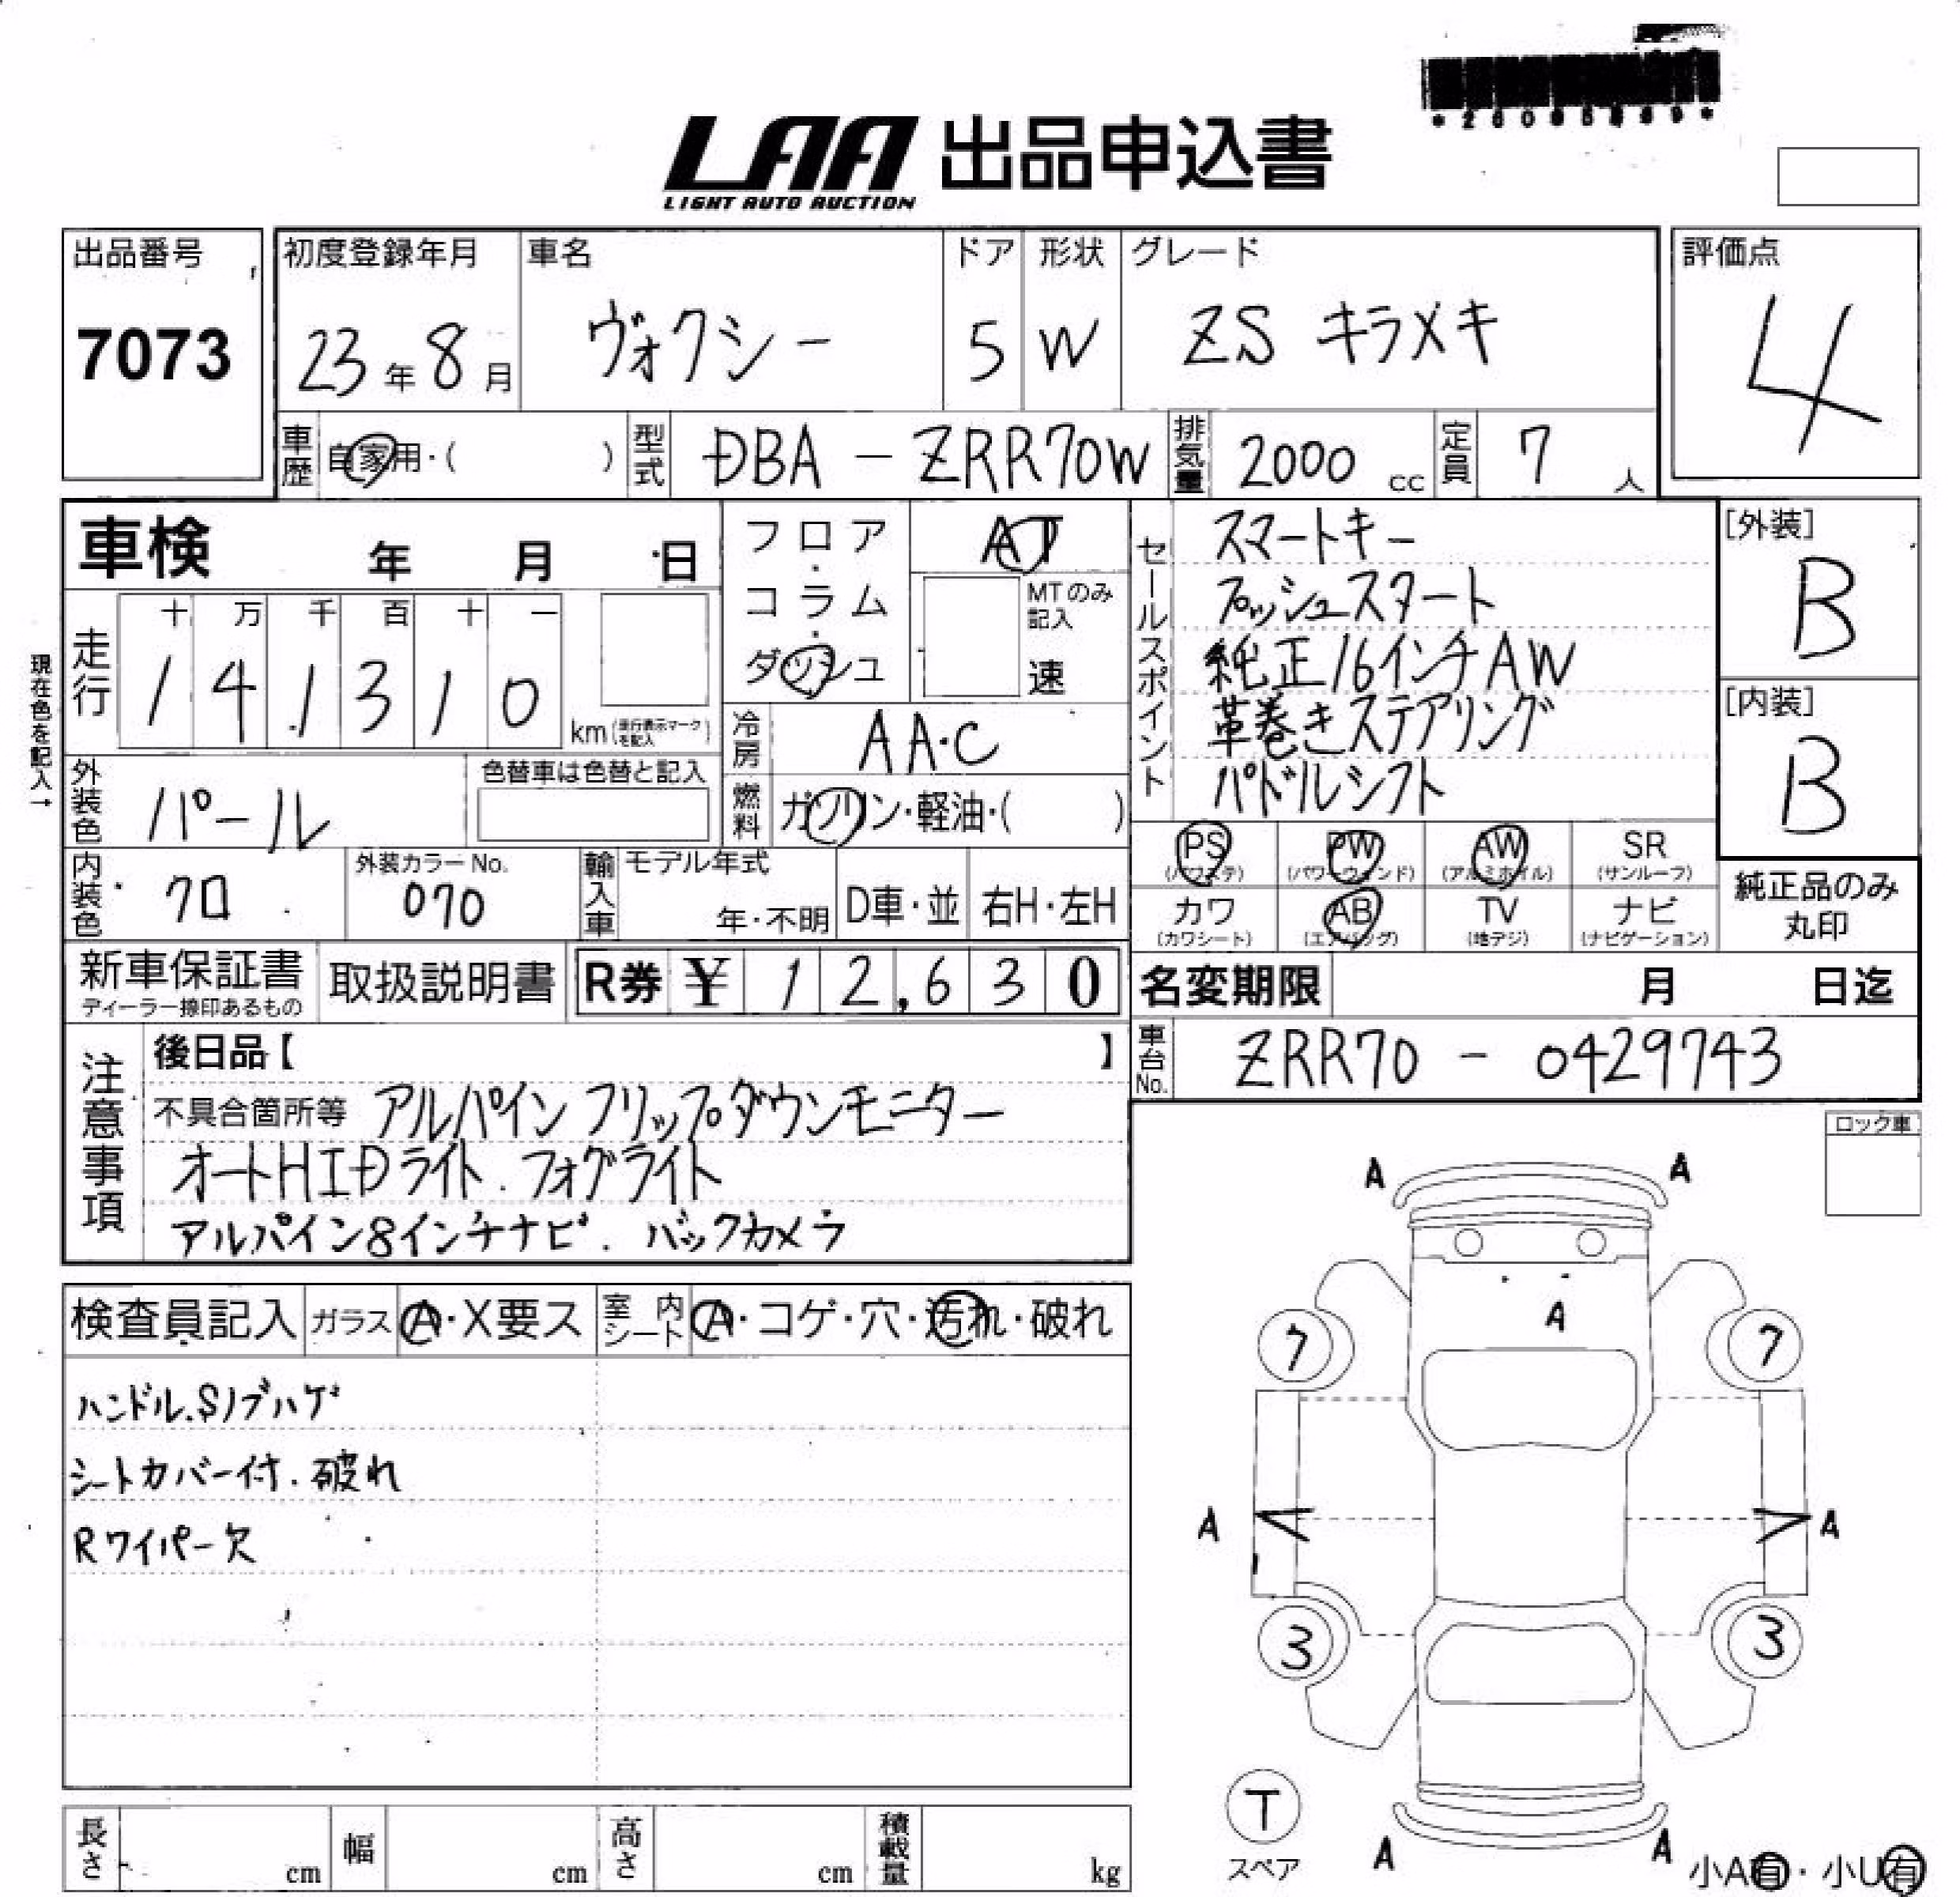 LAA 出品申込書
LIGHT AUTO AUCTION
出品番号 7073
初度登録年月 23年8月
車名 ヴォクシー
ドア 5
形状 W
グレード ZS キラメキ
評価点 4
車歴 自家用・( )
型式 DBA - ZRR70W
排気量 2000 cc
定員 7 人
車検 年 月 日
フロア・コラム・ダッシュ
AT
MTのみ記入 速
走行 十 万 千 百 十 一
141310 km (走行表示マークを記入)
現在色を記入→
冷房 AA・C
外装色 パール
色替車は色替と記入
燃料 ガソリン・軽油・( )
内装色 クロ
外装カラーNo. 070
輸入車 モデル年式 年・不明
D車・並 右H・左H
セールスポイント
スマートキー
プッシュスタート
純正16インチAW
革巻きステアリング
パドルシフト
[外装] B
[内装] B
PS (パワステ) PW (パワーウィンド) AW (アルミホイル) SR (サンルーフ)
カワ (カワシート) AB (エアバッグ) TV (地デジ) ナビ (ナビゲーション)
純正品のみ丸印
新車保証書
ディーラー捺印あるもの
取扱説明書
R券 ¥12,630
名変期限 月 日迄
車台No. ZRR70 - 0429743
注意事項
後日品【 】
不具合箇所等 アルパイン フリップダウンモニター
オートHIDライト. フォグライト
アルパイン8インチナビ. バックカメラ
ロック車
検査員記入 ガラス A・X要ス 室内シート A・コゲ・穴・汚れ・破れ
ハンドル.Sノブハゲ
シートカバー付. 破れ
Rワイパー欠
A A
A
7 7
A A
3 3
T
スペア
A A
小A有・小U有
長さ cm 幅 cm 高さ cm 積載量 kg